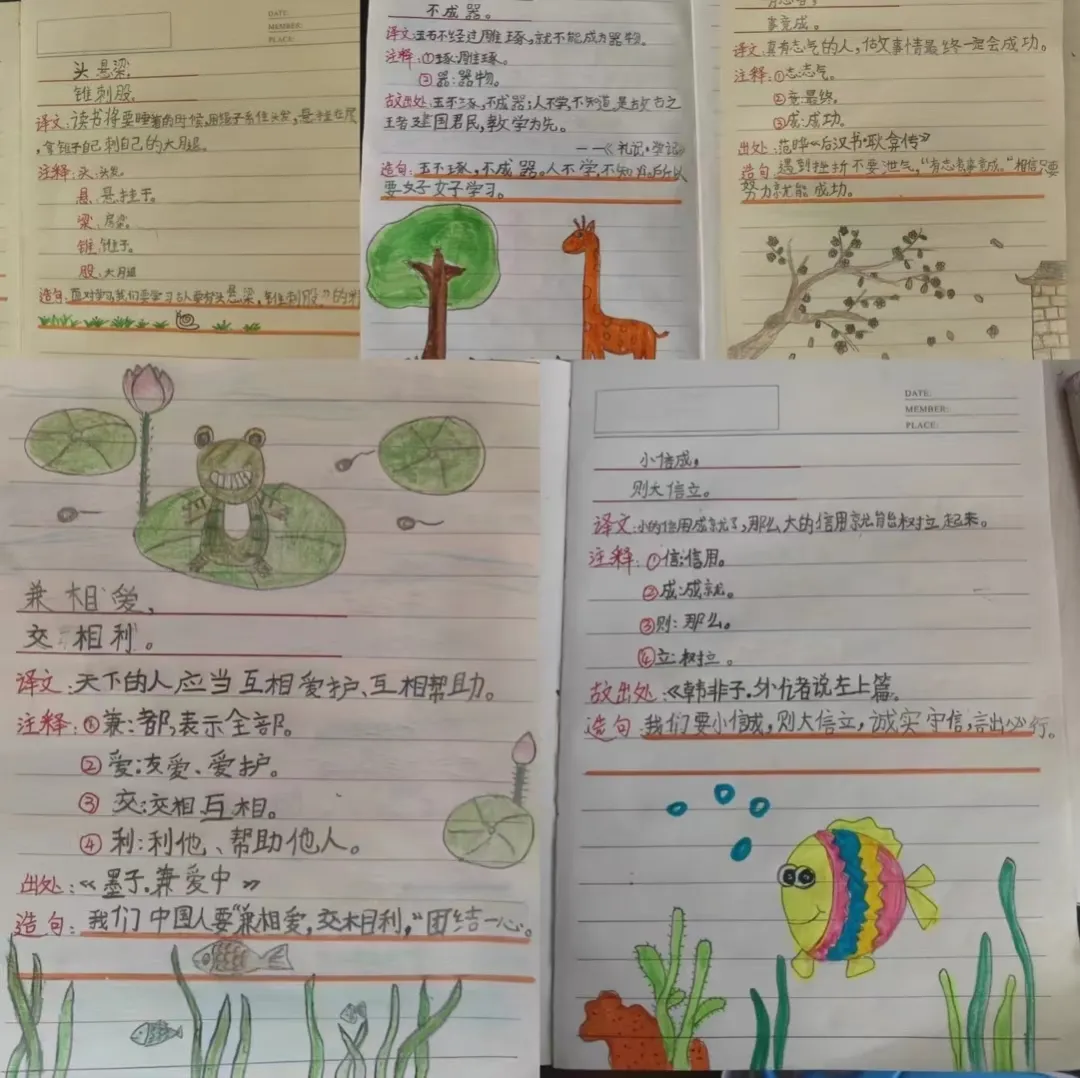 DATE:
MEMBER:
PLACE:
头悬梁,
锥刺股。
译文:读书将要睡着的时候,用绳子系住头发,悬挂在房
拿锥子自己刺自己的大月退。
注释:头:头发。
悬:悬挂于。
梁:房梁。
锥:锥子。
股:大月退
造句:面对学习我们要学习古人要有头悬梁,锥刺股"的
不成器。
译文:玉石不经过雕琢,就不能成为器物。
注释:①琢:雕琢。
②器:器物。
故出处:玉不琢,不成器;人不学,不知道,是故古之
王者建国君民,教学为先。
——《礼记·学记》
造句:玉不琢,不成器。人不学,不知义。所以
要好好学习。
有志者,
事竟成。
译文:真有志气的人,做故事情最终一定会成功。
注释:①志:志气。
②竟:最终。
③成:成功。
出处:范晔《后汉书·耿弇传》
造句:遇到挫折不要泄气,"有志者事竟成。"相信只要
努力就能成功。
兼相爱、
交相利。
译文:天下的人应当互相爱护、互相帮助。
注释:①兼:都,表示全部。
②爱:友爱、爱护。
③交:交相互相。
④利:利他、帮助他人。
出处:《墨子.兼爱中》
造句:我们中国人要"兼相爱,交相利,"团结一心。
DATE:
MEMBER:
PLACE:
小信成,
则大信立。
译文:小的信用成就了,那么大的信用就能树立起来。
注释:①信:信用。
②成:成就。
③则:那么。
④立:树立。
故出处:《韩非子.外储说左上篇。
造句:我们要小信成,则大信立,诚实守信,言出必行。